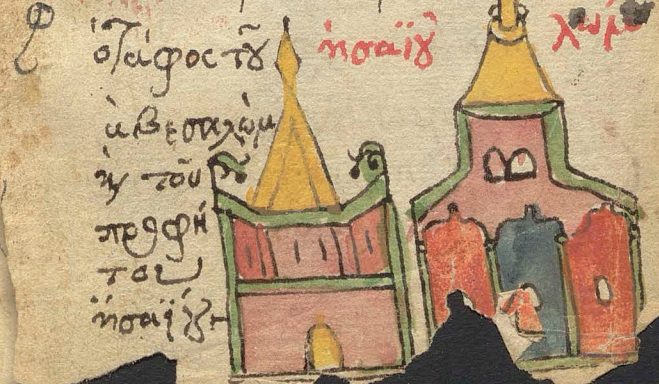 ὁ τάφος τοῦ
ἀβεσαλώμ
κ τοῦ
προφή
του
ἡσαΐου
ἡσαΐου